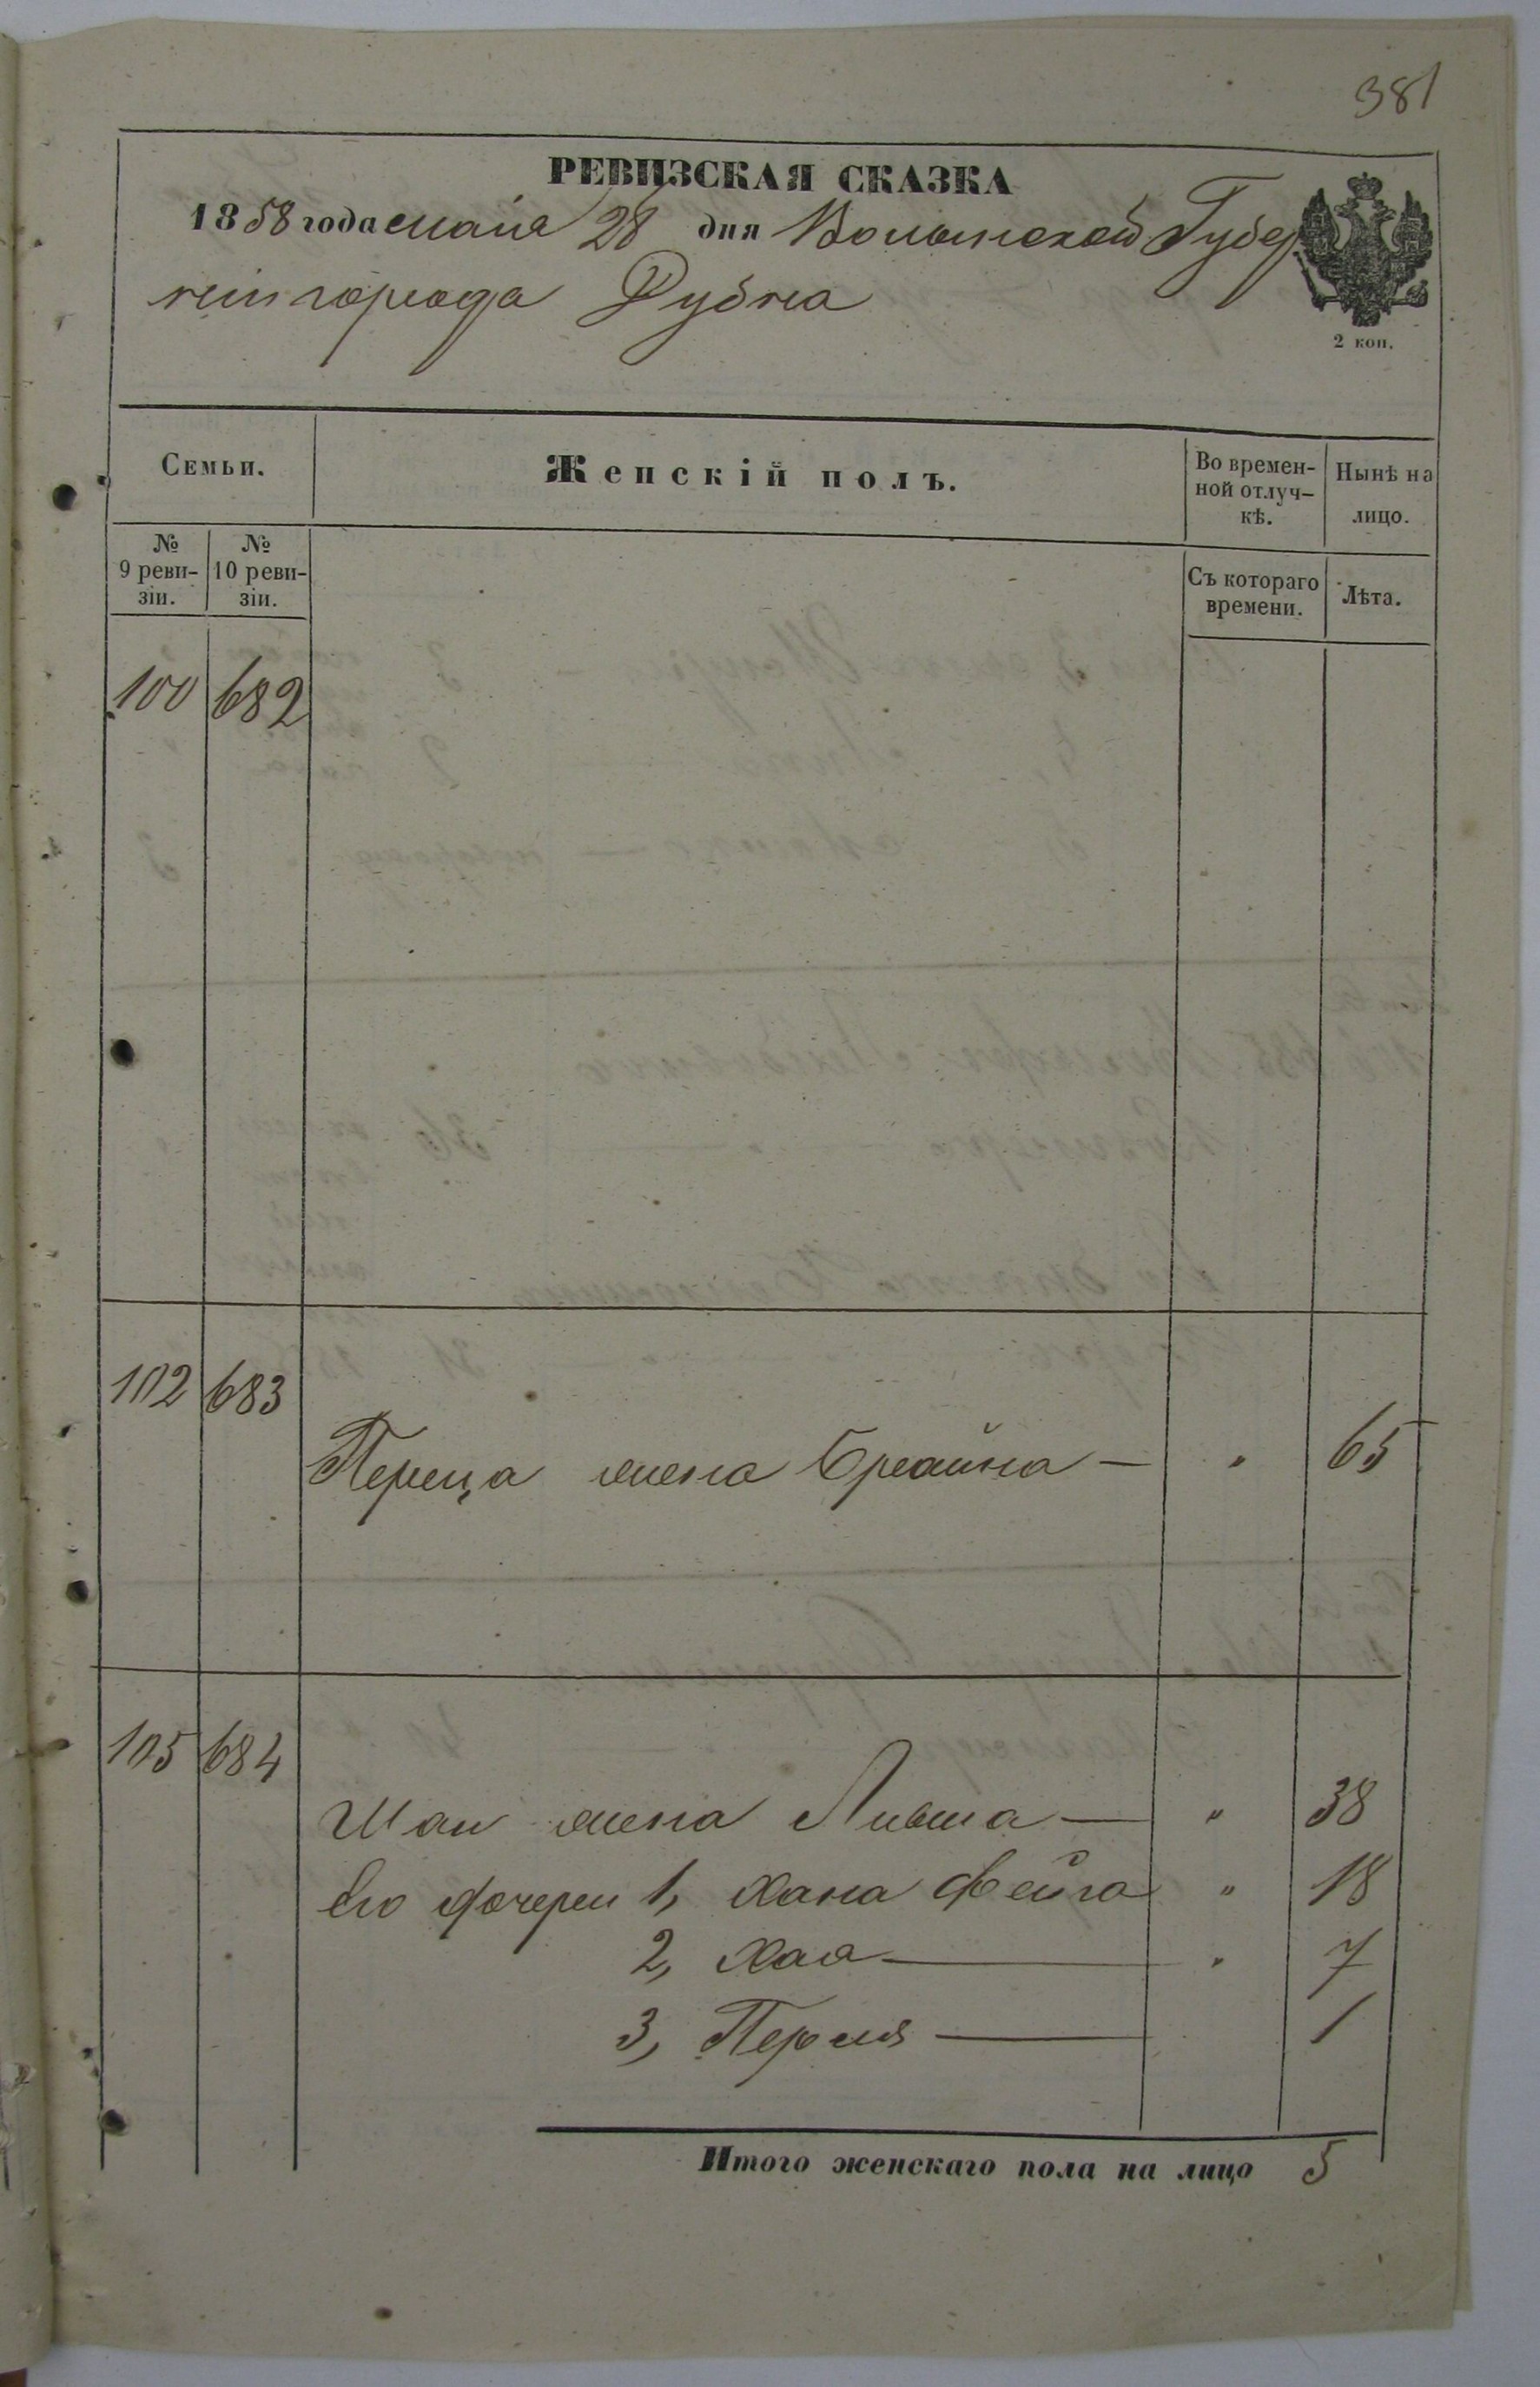 381
РЕВИЗСКАЯ СКАЗКА
1858 года мая 28 дня Волынской Губер
ніи города Дубна
2 коп.
Семьи.
Женскій полъ.
Во времен-
ной отлуч-
кѣ.
Нынѣ на
лицо.
№
9 реви-
зіи.
№
10 реви-
зіи.
Съ котораго
времени.
Лѣта.
100 682
102 683
Переца жена Брайна — " 65
105 684
Шаи жена Ливша — " 38
Его дочери 1, Хана Фейга " 18
2, Хая — " 7
3, Перля — 1
Итого женскаго пола на лицо 5